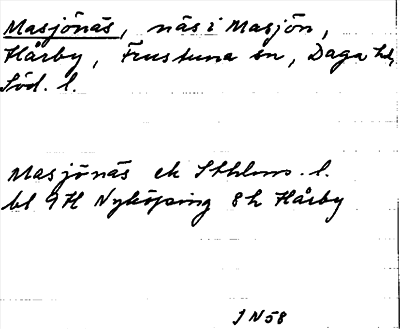 Masjönäs, näs i Masjön,
Hårby, Frustuna sn, Daga hd,
Söd. l.
Masjönäs ek Sthlms. l.
bl 9H Nyköping 8h Hårby
J N 58